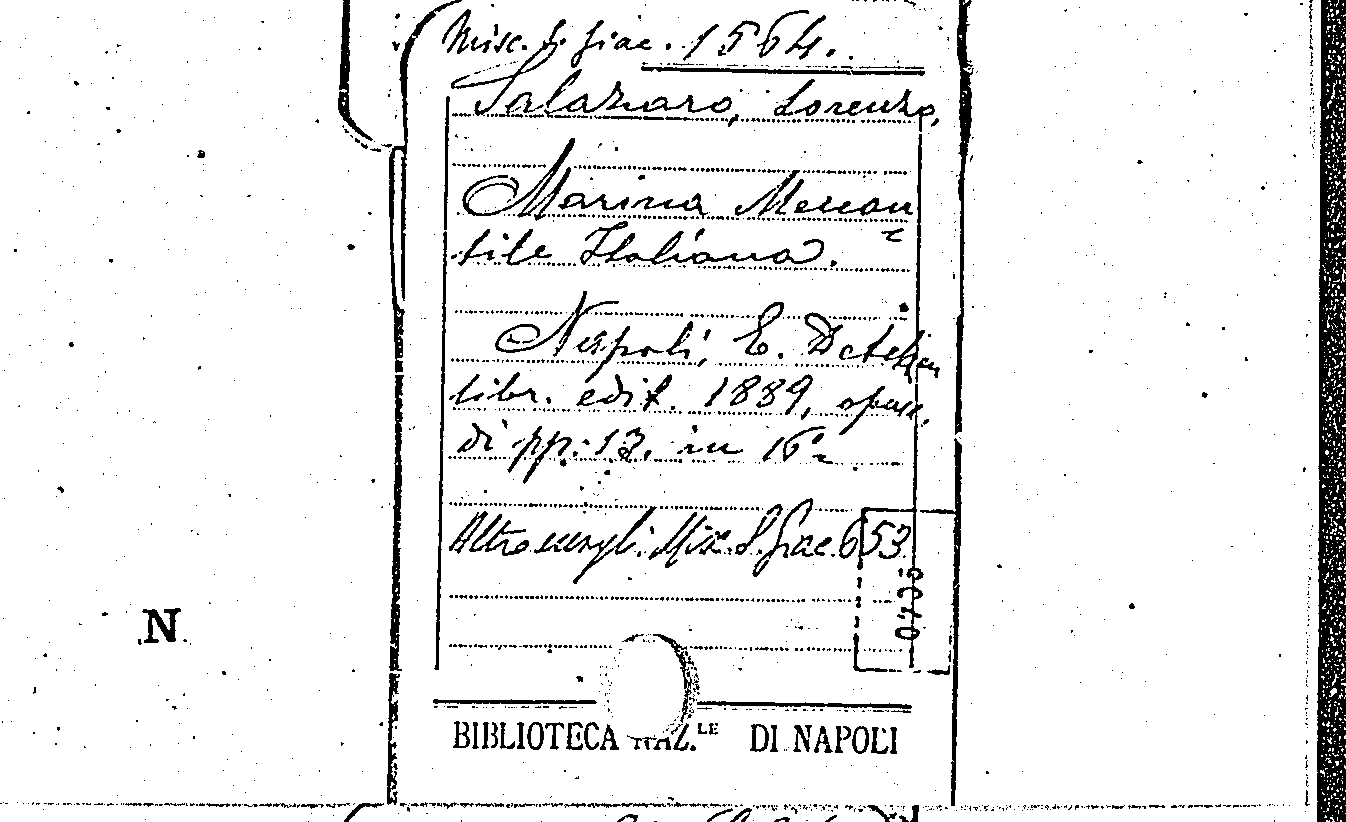 Misc. S. Giac. 1564.
Salazaro, Lorenzo,
Marina Mercan
tile Italiana.
Napoli, E. Detken
libr. edit. 1889, opusc.
di pp. 13. in 16°
Altro esempl: Misc. S. Giac. 653
0735
N
BIBLIOTECA NAZ.LE DI NAPOLI